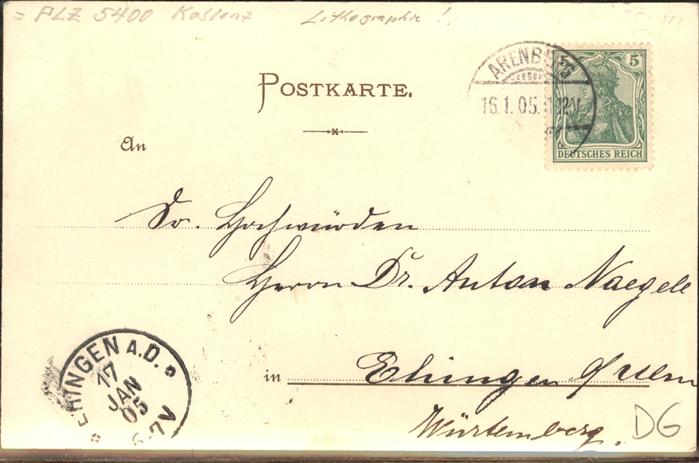 = PLZ 5400 Koblenz Lithographie!
POSTKARTE.
ARENBERG
16.1.05.
5
DEUTSCHES REICH
An
Sr. Hochwürden
Herrn Dr. Anton Naegele
in Ehingen a/Ulm
Württemberg.
DG
EHINGEN A.D.
17
JAN
05
6-7V